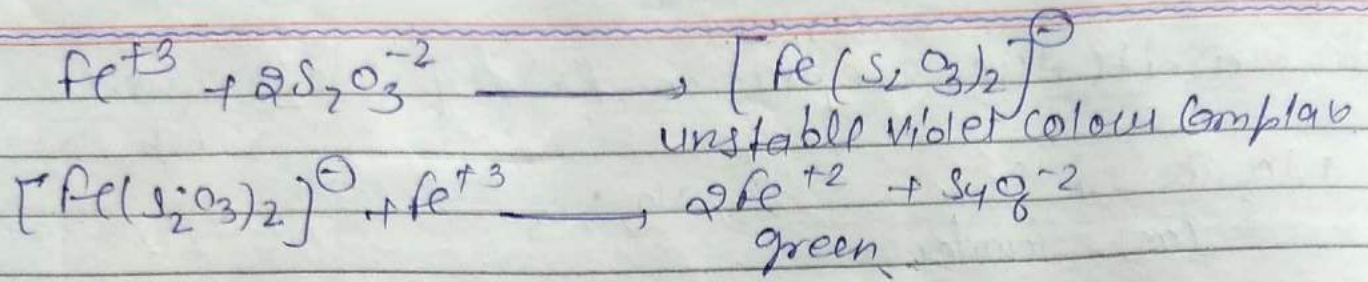 fe⁺³ + 2S₂O₃⁻² ⟶ [fe(S₂O₃)₂]⊖
unstable violet colour Complax
[fe(S₂O₃)₂]⊖ + fe⁺³ ⟶ 2fe⁺² + S₄O₈⁻²
green